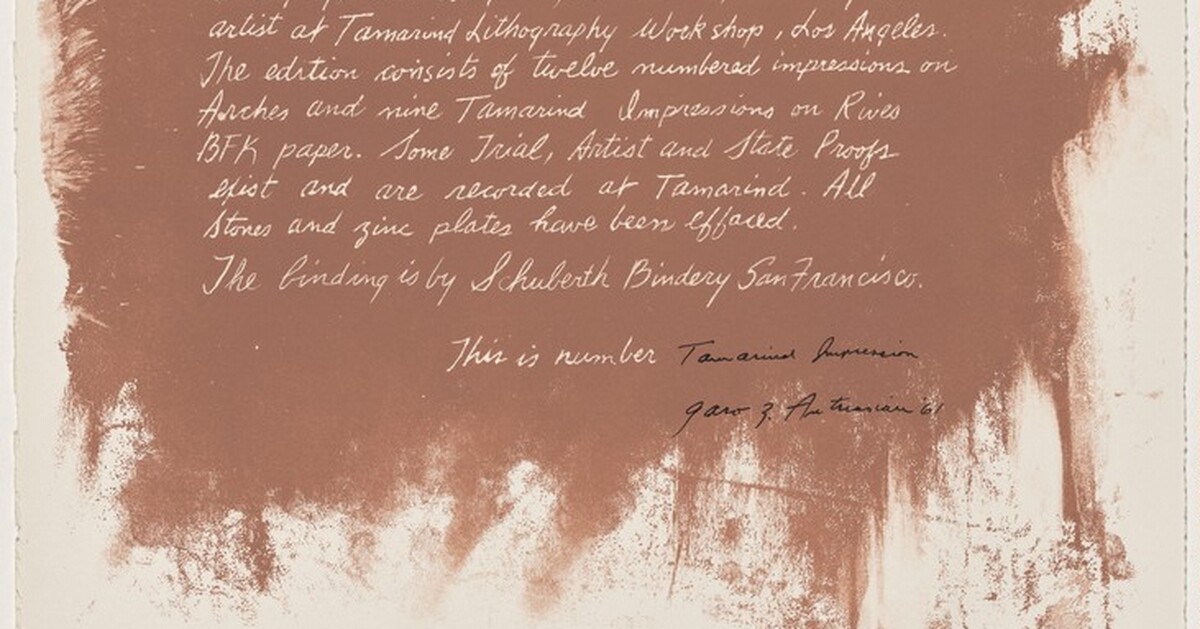 artist at Tamarind Lithography Workshop, Los Angeles.
The edition consists of twelve numbered impressions on
Arches and nine Tamarind Impressions on Rives
BFK paper. Some Trial, Artist and State Proofs
exist and are recorded at Tamarind. All
Stones and zinc plates have been effaced.
The binding is by Schuberth Bindery San Francisco.
This is number Tamarind Impression
garo z. Antreasian '61